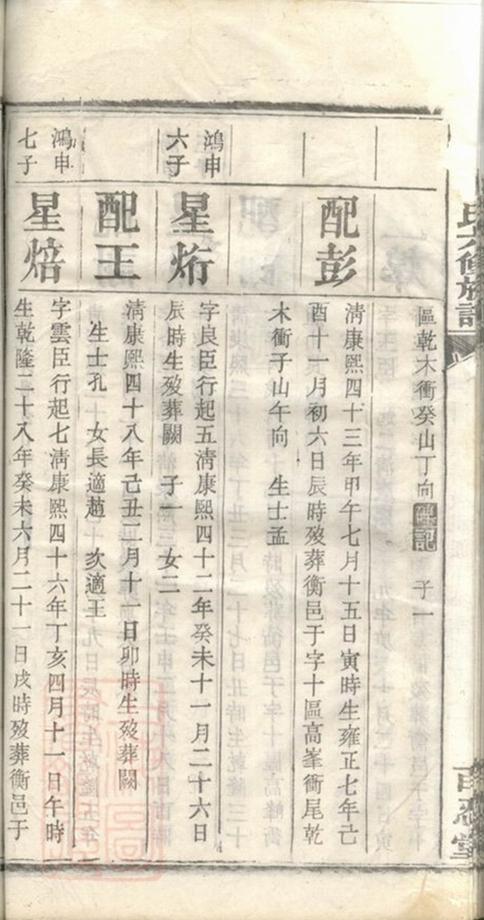 氏六修族譜
百忍堂
區乾木衝癸山丁向 碑記 子一
配彭
清康熙四十三年甲午七月十五日寅時生雍正七年己
酉十一月初六日辰時歿葬衡邑子字十區高峯衝尾乾
木衝子山午向 生士孟
鴻申
六子
星烆
字良臣行起五清康熙四十二年癸未十一月二十六日
辰時生歿葬闕 子一 女二
配王
清康熙四十八年己丑二月十一日卯時生歿葬闕
生士孔 女長適趙 次適王
鴻申
七子
星焙
字雲臣行起七清康熙四十六年丁亥四月十一日午時
生乾隆二十八年癸未六月二十一日戌時歿葬衡邑子